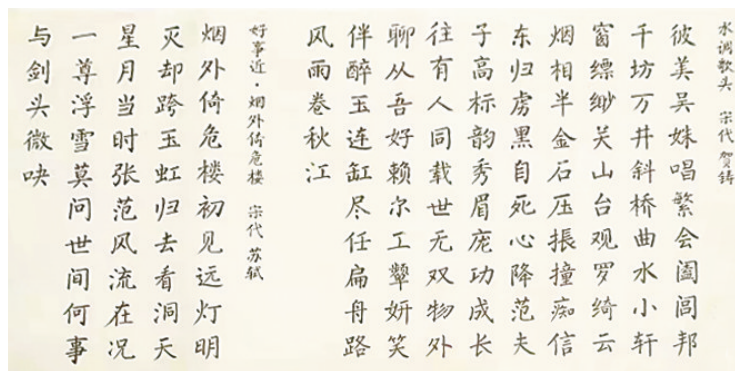 水调歌头 宋代 贺铸
彼美吴姝唱繁会阖闾邦
千坊万井斜桥曲水小轩
窗缥缈关山台观罗绮云
烟相半金石压振撞痴信
东归虏黑自死心降范夫
子高标韵秀眉庞功成长
往有人同载世无双物外
聊从吾好赖尔工颦妍笑
伴醉玉连缸尽任扁舟路
风雨卷秋江
好事近·烟外倚危楼 宋代 苏轼
烟外倚危楼初见远灯明
灭却跨玉虹归去看洞天
星月当时张范风流在况
一尊浮雪莫问世间何事
与剑头微吷